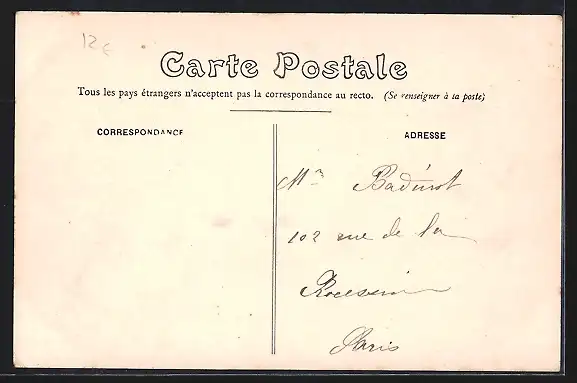 12€
Carte Postale
Tous les pays étrangers n'acceptent pas la correspondance au recto. (Se renseigner à la poste)
CORRESPONDANCE
ADRESSE
Mr Badinot
102 rue de la
Paris